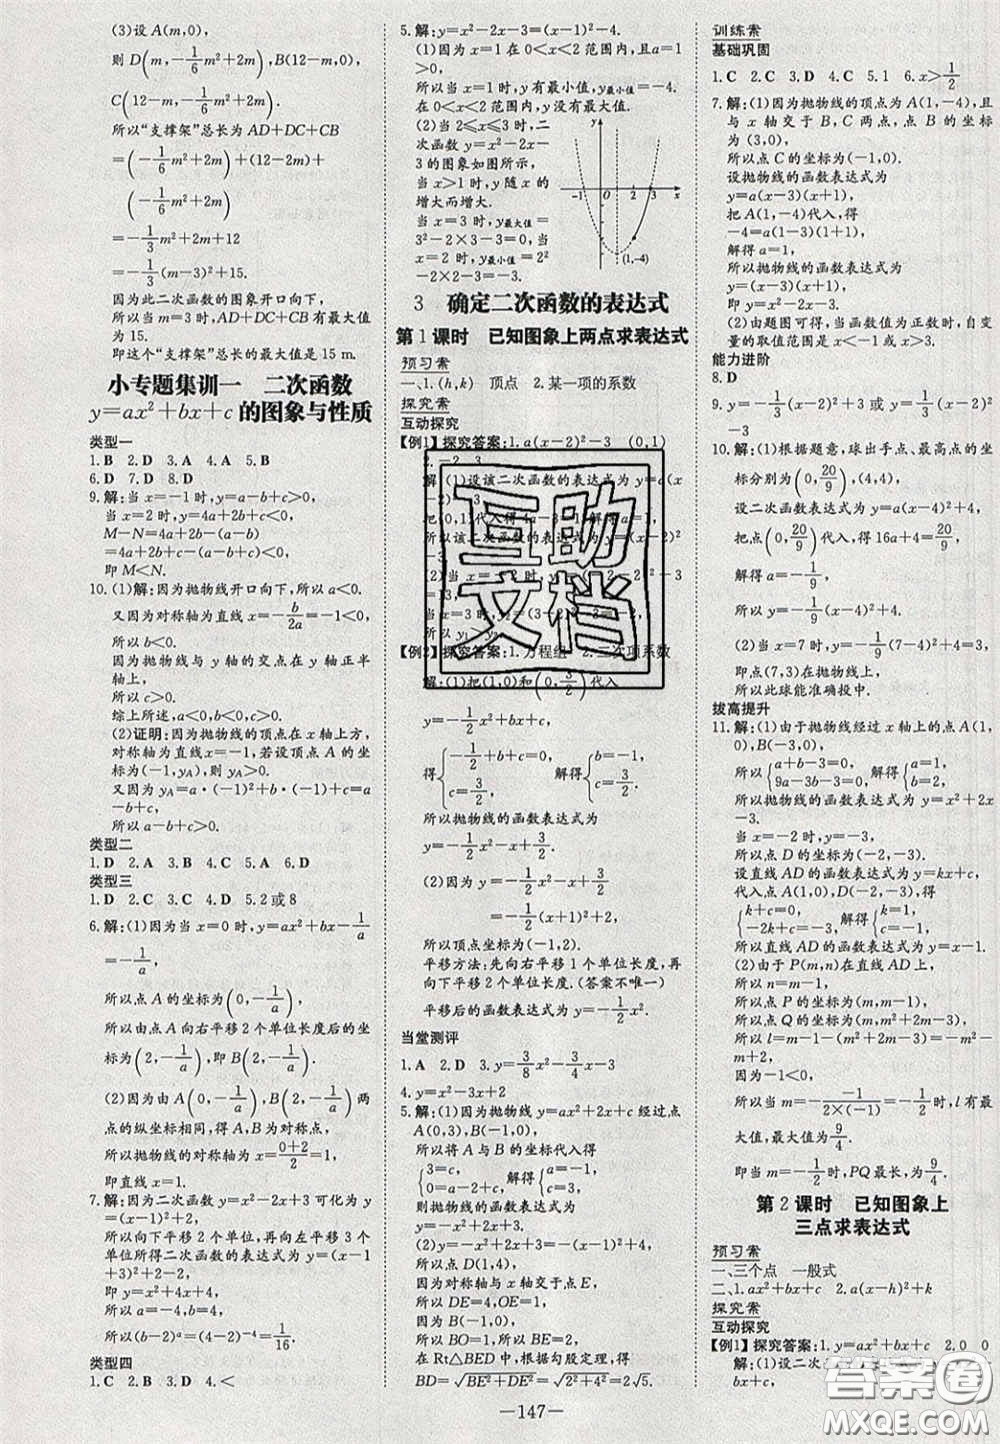 (3)设 A(m,0),
则 D(m,-1/6m²+2m),B(12-m,0),
C(12-m,-1/6m²+2m)
所以“支撑架”总长为 AD+DC+CB
=(-1/6m²+2m)+(12-2m)+
(-1/6m²+2m)
=-1/3m²+2m+12
=-1/3(m-3)²+15.
因为此二次函数的图象开口向下,
所以当 m=3 时,AD+DC+CB 有最大值
为 15.
即这个“支撑架”总长的最大值是 15 m.
小专题集训一 二次函数
y=ax²+bx+c 的图象与性质
类型一
1.B 2.D 3.A 4.A 5.B
6.D 7.D 8.D
9.解:当 x=-1 时,y=a-b+c>0,
当 x=2 时,y=4a+2b+c<0,
M-N=4a+2b-(a-b)
=4a+2b+c-(a-b+c)<0,
即 M<N.
10.(1)解:因为抛物线开口向下,所以 a<0.
又因为对称轴为直线 x=-b/2a=-1<0,
所以 b<0.
因为抛物线与 y 轴的交点在 y 轴正半
轴上,
所以 c>0.
综上所述,a<0,b<0,c>0.
(2)证明:因为抛物线的顶点在 x 轴上方,
对称轴为直线 x=-1,若设顶点 A 的坐
标为(-1,yA),则 yA>0.
又因为 yA=a·(-1)²+b·(-1)+c=
a-b+c,
所以 a-b+c>0.
类型二
1.D 2.A 3.B 4.C 5.A 6.D
类型三
1.D 2.D 3.C 4.C 5.2 或 8
6.解:(1)因为当 x=0 时,y=ax²+bx-1/a
=-1/a,
所以点 A 的坐标为(0,-1/a)
所以由点 A 向右平移 2 个单位长度后的坐
标为(2,-1/a),即 B(2,-1/a).
(2)因为由 A(0,-1/a)与 B(2,-1/a)两
点的纵坐标相同,得 A、B 为对称点,
所以抛物线的对称轴为直线 x=(0+2)/2=1,
即直线 x=1.
7.解:因为二次函数 y=x²-2x+3 可化为 y
=(x-1)²+2,
所以向下平移 2 个单位,再向左平移 3 个
单位所得二次函数的表达式为 y=(x-1
+3)²+2-2,
即 y=(x+2)²=x²+4x+4,
所以 a=1,b=4,
所以(b-2)ᵃ=(4-2)⁻⁴=1/16.
类型四
1.C 2.D 3.A 4.<
5.解:y=x²-2x-3=(x-1)²-4.
(1)因为 x=1 在 0<x<2 范围内,且 a=1
>0,
所以当 x=1 时,y 有最小值,y最小值=-4.
在 0<x<2 范围内,y 没有最大值.
(2)当 2≤x≤3 时,二
次函数 y=x²-2x-
3 的图象如图所示,
当 x>1 时,y 随 x 的
增大而增大.
当 x=3 时,y最大值=
3²-2×3-3=0;
当 x=2 时,y最小值=2²
-2×2-3=-3.
y
-1 0 2 3 x
(1,-4)
3 确定二次函数的表达式
第 1 课时 已知图象上两点求表达式
预习案
一、1.(h,k) 顶点 2.某一项的系数
探究案
互动探究
【例1】探究答案:1.a(x-2)²-3 (0,1)
【例2】探究答案:1.方程组
解:(1)把(1,0)和(0,3/2)代入
y=-1/2x²+bx+c,
得{-1/2+b+c=0, c=3/2 解得{b=-1, c=3/2.
所以抛物线的函数表达式为
y=-1/2x²-x+3/2.
(2)因为 y=-1/2x²-x+3/2=-1/2(x+
1)²+2,
所以顶点坐标为(-1,2).
平移方法:先向右平移 1 个单位长度,再
向下平移 2 个单位长度.(答案不唯一)
平移后的函数表达式为 y=-1/2x².
当堂测评
1.A 2.D 3.y=3/8x²-3/4x-3
4.y=x²-3x+2
5.解:(1)因为抛物线 y=ax²+2x+c 经过点
A(0,3),B(-1,0),
所以将 A 与 B 的坐标代入得
{3=c, 0=a-2+c, 解得{a=-1, c=3.
则抛物线的函数表达式为
y=-x²+2x+3.
(2)由 y=-x²+2x+3=-(x-1)²+4,
所以点 D(1,4).
因为对称轴与 x 轴交于点 E,
所以 DE=4,OE=1.
因为 B(-1,0),
所以 BO=1,所以 BE=2.
在 Rt△BED 中,根据勾股定理,得
BD=√(BE²+DE²)=√(2²+4²)=2√5.
训练案
基础巩固
1.C 2.C 3.D 4.C 5.1 6.x>1/2
7.解:(1)因为抛物线的顶点为 A(1,-4),且
与 x 轴交于 B,C 两点,点 B 的坐标
为(3,0),
所以点 C 的坐标为(-1,0).
设抛物线的函数表达式为
y=a(x-3)(x+1),
把 A(1,-4)代入,得
-4=a(1-3)(1+1),
解得 a=1,
所以抛物线的函数表达式为
y=(x-3)(x+1),
即 y=x²-2x-3.
(2)由题图可得,当函数值大于 0 时,自变
量的取值范围为 x<-1 或 x>3.
能力进阶
8.D
9.y=-1/3(x-2)²+3 或 y=-1/3(x+
2)²-3
10.解:(1)根据题意,球出手点、最高点的坐
标分别为(0,20/9),(4,4),
设二次函数表达式为 y=a(x-4)²+4,
把点(0,20/9)代入,得 16a+4=20/9,
解得 a=-1/9,
所以 y=-1/9(x-4)²+4.
(2)当 x=7 时,y=-1/9(7-4)²+4=3,
即点(7,3)在抛物线上,
所以此球能准确投中.
拔高提升
11.解:(1)由于抛物线经过 x 轴上的点 A(1,
0),B(-3,0),
所以{a+b-3=0, 9a-3b-3=0, 解得{a=1, b=2.
所以抛物线的函数表达式为 y=x²+2x
-3.
当 x=-2 时,y=-3,
所以点 D 的坐标为(-2,-3).
设直线 AD 的函数表达式为 y=kx+t,
代入点 A(1,0),D(-2,-3),得
{k+t=0, -2k+t=-3, 解得{k=1, t=-1.
所以直线 AD 的函数表达式为 y=x-1.
(2)由于 P(m,n)在直线 AD 上,
所以 n=m-1,
所以点 P 的坐标为(m,m-1),
所以点 Q 的坐标为(m,m²+2m-3).
所以 l=m-1-(m²+2m-3)=-m²-
m+2,
因为-1<0,
所以当 m=-(-1)/(2×(-1))=-1/2 时,l 有最
大值,最大值为 9/4.
即当 m=-1/2 时,PQ 最长,为 9/4.
第 2 课时 已知图象上
三点求表达式
预习案
一、三个点 一般式
二、1.ax²+bx+c 2.a(x-h)²+k
探究案
互动探究
【例1】探究答案:1.y=ax²+bx+c 2.0 0
—147—
互助
文档
答案圈
MXQE.COM